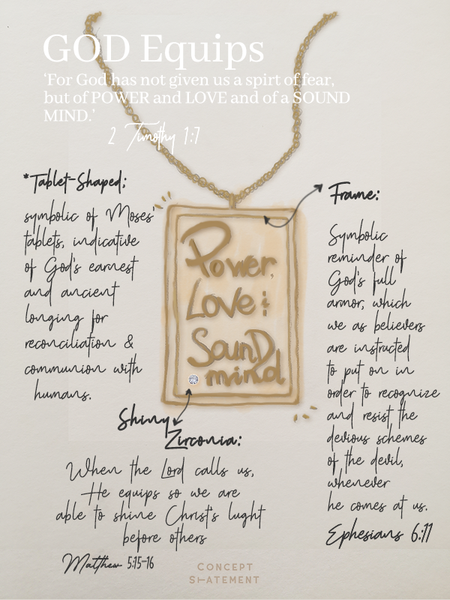 GOD Equips
'For God has not given us a spirt of fear,
but of POWER and LOVE and of a SOUND
MIND.'
2 Timothy 1:7
*Tablet-Shaped:
symbolic of Moses'
tablets, indicative
of God's earnest
and ancient
longing for
reconciliation &
communion with
humans.
Frame:
Symbolic
reminder of
God's full
armor, which
we as believers
are instructed
to put on in
order to recognize
and resist the
devious schemes
of the devil,
whenever
he comes at us.
Ephesians 6:11
Power,
Love &
Sound
mind.
Shiny
Zirconia:
When the Lord calls us,
He equips so we are
able to shine Christ's light
before others
Matthew 5:15-16
CONCEPT
STATEMENT